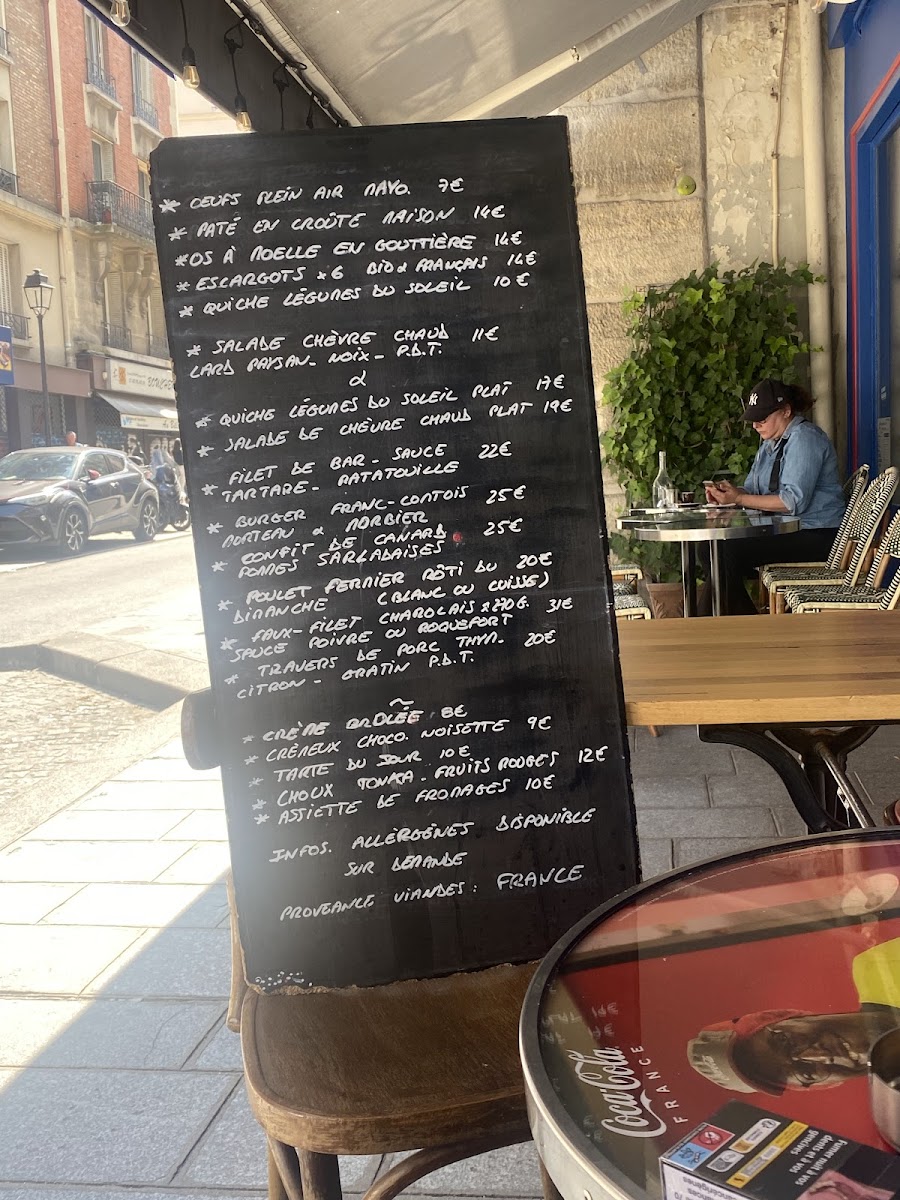 * OEUFS PLEIN AIR MAYO. 7€
* PATÉ EN CROÛTE MAISON 14€
* OS À MOELLE EN GOUTTIÈRE 14€
* ESCARGOTS x6 BIO & FRANÇAIS 14€
* QUICHE LÉGUMES DU SOLEIL 10€
* SALADE CHÈVRE CHAUD 11€
LARD PAYSAN - NOIX - P.D.T.
&
* QUICHE LÉGUMES DU SOLEIL PLAT 17€
* SALADE DE CHÈVRE CHAUD PLAT 19€
* FILET DE BAR - SAUCE 22€
TARTARE - RATATOUILLE
* BURGER FRANC-COMTOIS 25€
MORTEAU & MORBIER
* CONFIT DE CANARD 25€
POMMES SARLADAISES
* POULET FERMIER RÔTI DU 20€
DIMANCHE (BLANC OU CUISSE)
* FAUX-FILET CHAROLAIS x270G. 31€
SAUCE POIVRE OU ROQUEFORT
* TRAVERS DE PORC THYM. 20€
CITRON - GRATIN P.D.T.
~
* CRÈME BRÛLÉE 8€
* CRÉMEUX CHOCO. NOISETTE 9€
* TARTE DU JOUR 10€
* CHOUX TONKA - FRUITS ROUGES 12€
* ASSIETTE DE FROMAGES 10€
INFOS. ALLERGÈNES DISPONIBLE
SUR DEMANDE
PROVEANCE VIANDES : FRANCE
NY
Coca-Cola
FRANCE
Fumer nuit à vos
dents et à vos
gencives